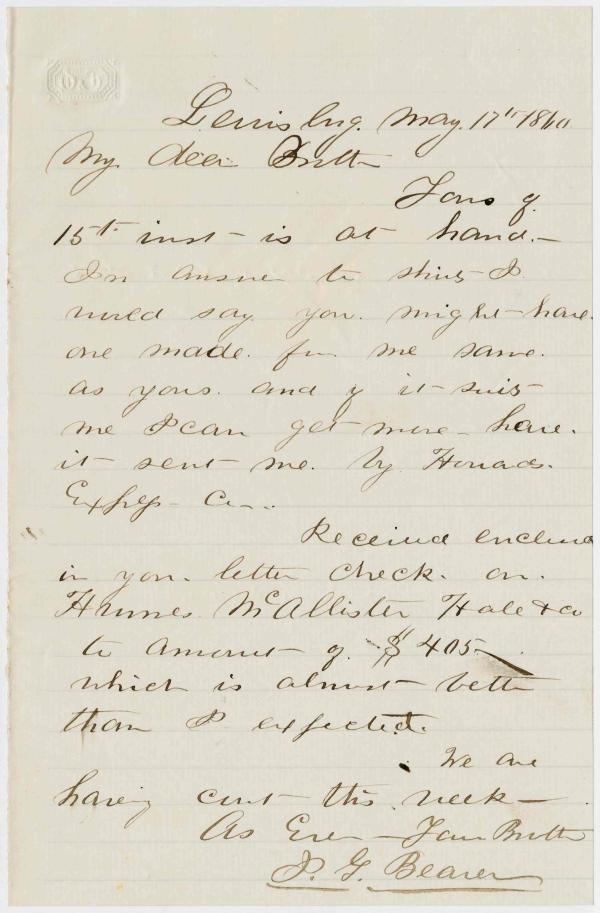 Lewisburg. May. 17th 1860
My. dear Brother
Yours of
15th inst - is at hand. -
In answer to shirts I
would say you. might - have.
one made. for me same.
as yours. and if it - suits
me I can get more - have.
it sent me. by Howards.
Express - Co..
Received enclosed
in your. letter check. on.
McAllister Hale & co
to amount of. $405.
which is almost better
than I expected.
We are
having court this week -
As Ever - Your Brother
J. G. Beaver